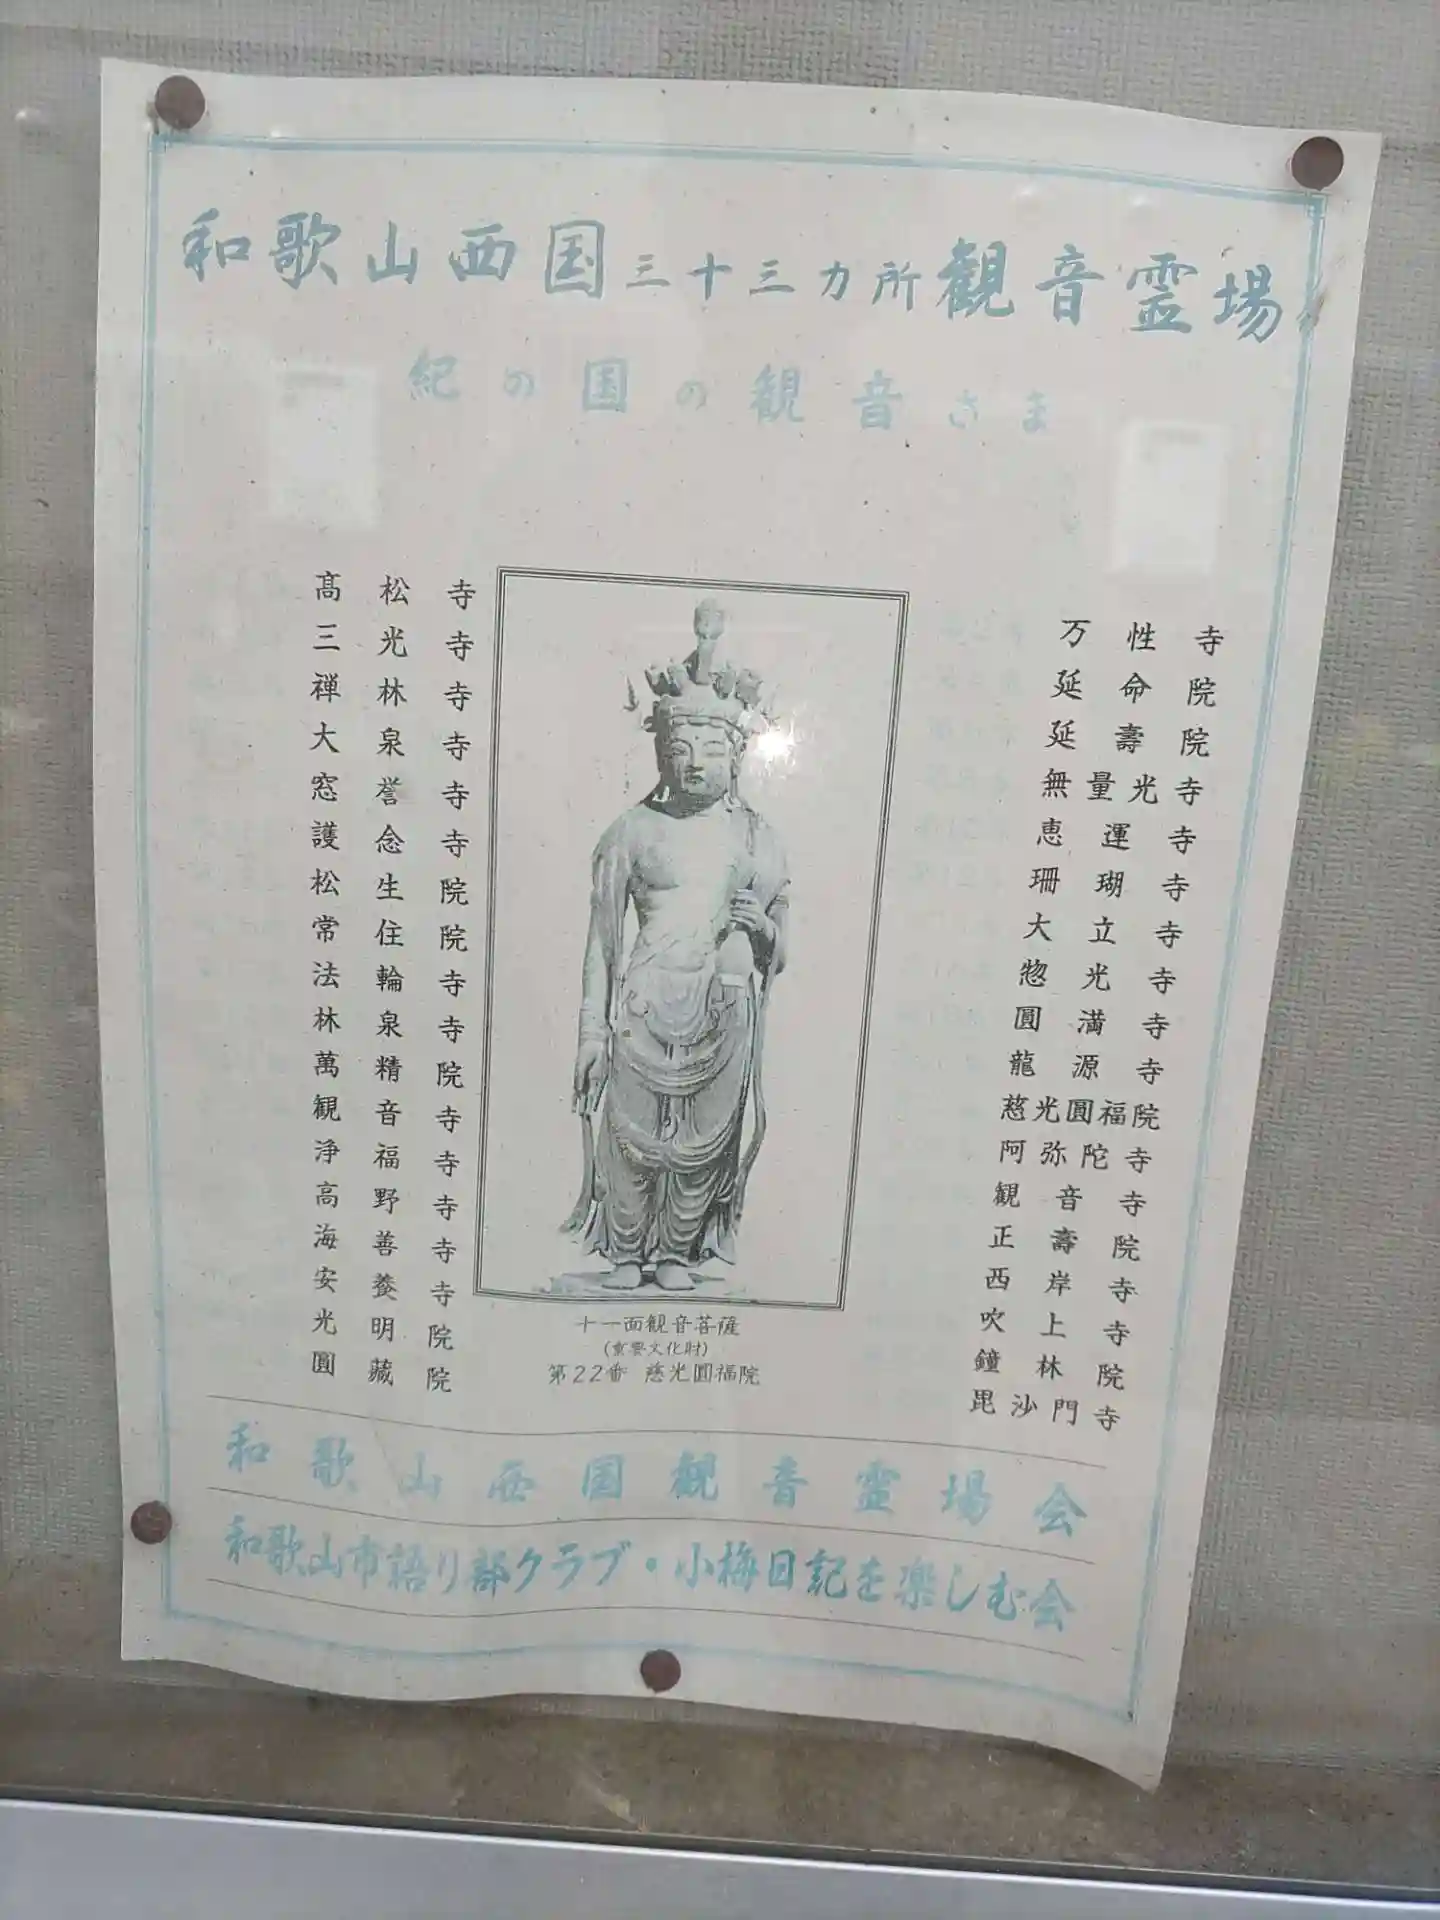 和歌山西国三十三カ所観音霊場
紀の国の観音さま
髙松寺
三光寺
禅林寺
大泉寺
窓誉寺
護念寺
松生院
常住院
法輪寺
林泉寺
萬精院
観音寺
浄福寺
高野寺
海善寺
安養寺
光明院
圓藏院
十一面観音菩薩
(重要文化財)
第22番 慈光圓福院
万性寺
延命院
延壽院
無量光寺
恵運寺
珊瑚寺
大立寺
惣光寺
圓満寺
龍源寺
慈光圓福院
阿弥陀寺
観音寺
正壽院
西岸寺
吹上寺
鐘林院
毘沙門寺
和歌山西国観音霊場会
和歌山市語り部クラブ・小梅日記を楽しむ会